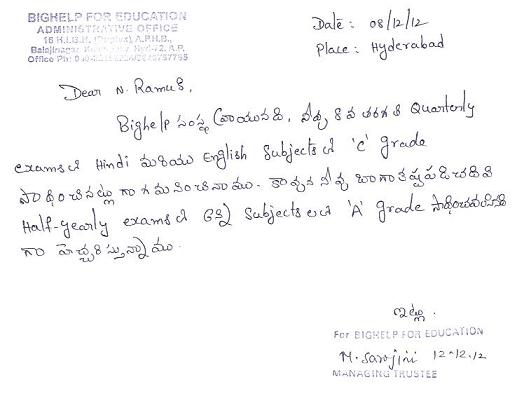 BIGHELP FOR EDUCATION
ADMINISTRATIVE OFFICE
Date : 08/12/12
Place : Hyderabad
Dear N. Ramu K,
Bighelp సంస్థ వ్రాయునది, నీవు 8 వ తరగతి Quarterly
exams లో Hindi మరియు English Subjects లో 'C' grade
సాధించినట్లు గా గమనించినాము. కావున నీవు బాగా కష్టపడి చదివి
Half-yearly exams లో Subjects లలో 'A' grade సాధించవలసిన
గా హెచ్చరిస్తున్నాము.
ఇట్లు.
For BIGHELP FOR EDUCATION
M. Sarojini 12-12-12
MANAGING TRUSTEE